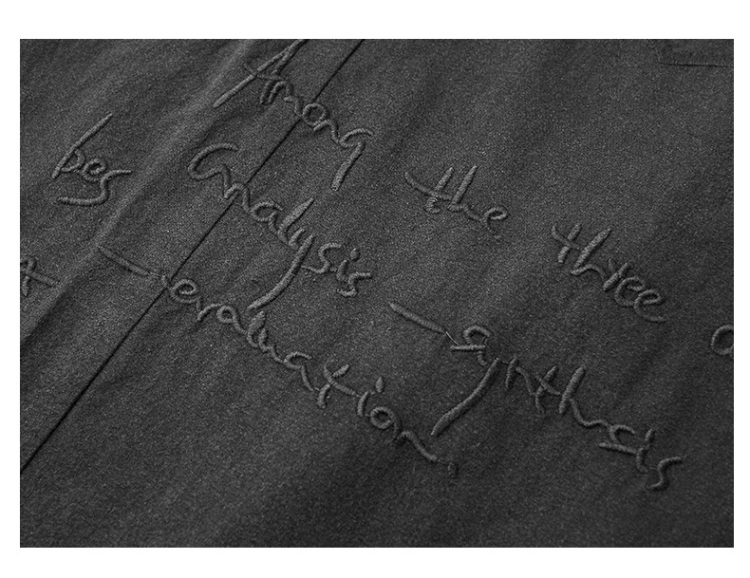 Among the three
bes Analysis - synthesis
- evaluation.